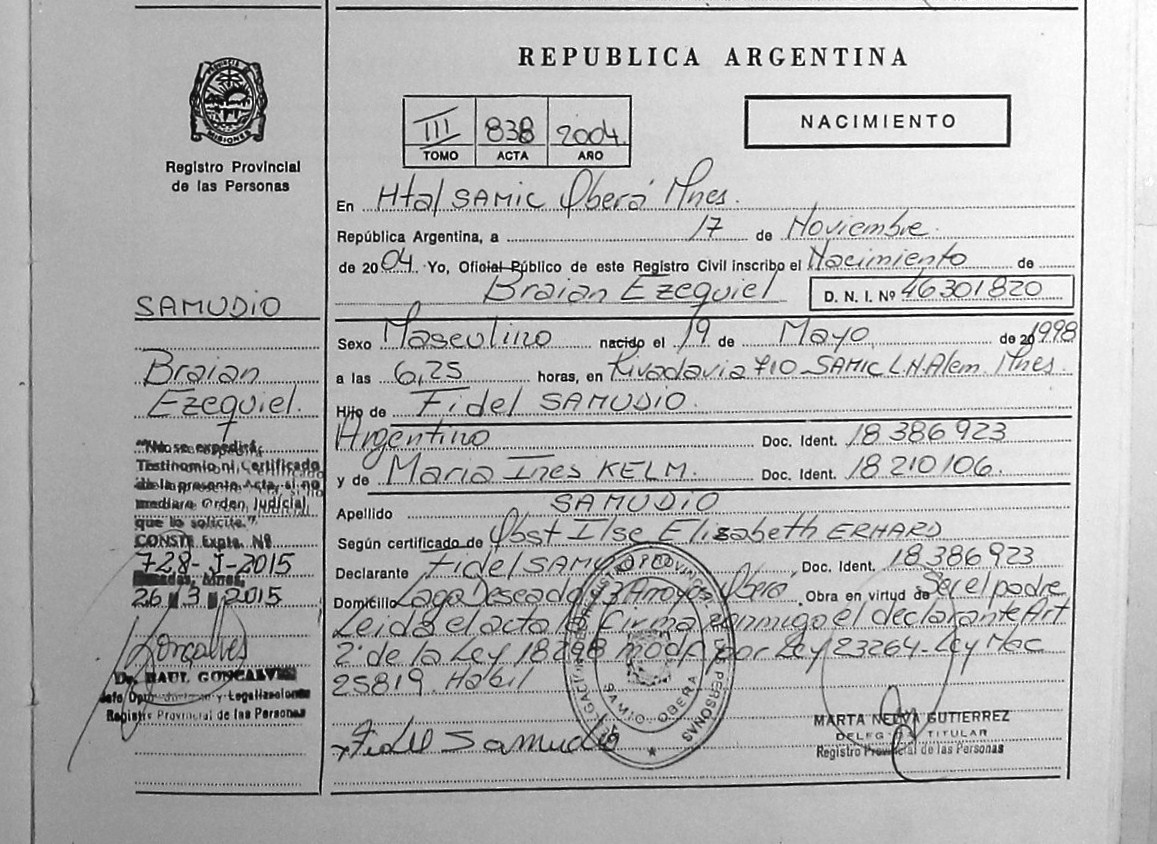 REPUBLICA ARGENTINA
PROVINCIA
MISIONES
Registro Provincial
de las Personas
III 838 2004
TOMO ACTA AÑO
NACIMIENTO
En Htal SAMIC Oberá Mnes.
República Argentina, a 17 de Noviembre
de 2004 Yo, Oficial Público de este Registro Civil inscribo el Nacimiento de
Braian Ezequiel D. N. I. Nº 46301820
Sexo Masculino nacido el 19 de Mayo de 20 1998
a las 6,25 horas, en Rivadavia 710 SAMIC L.N.Alem. Mnes.
Hijo de Fidel SAMUDIO.
Argentino Doc. Ident. 18 386 923
y de Maria Ines KELM. Doc. Ident. 18 210 106.
Apellido SAMUDIO
Según certificado de Obst Ilse Elizabeth ERHARD
Declarante Fidel SAMUDIO Doc. Ident. 18 386 923
Domicilio Lago Deseado y 3 Arroyos Oberá. Obra en virtud de Ser el padre
Leida el acta la firma conmigo el declarante Art
2º de la Ley 18248 modf por Ley 23264-Ley Nac
25819. Habil
Fidel Samudio
SAMIC OBERA
MARTA NELVA GUTIERREZ
DELEGADA TITULAR
Registro Provincial de las Personas
SAMUDIO
Braian
Ezequiel.
"No se expedirá,
Testimonio ni Certificado
de la presente Acta, si no
mediare Orden Judicial
que lo solicite."
CONSTE Expte. Nº
728-J-2015
Posadas, Mnes,
26 3 2015
Gonçalves
Dr. RAUL GONCALVES
Registro Provincial de las Personas